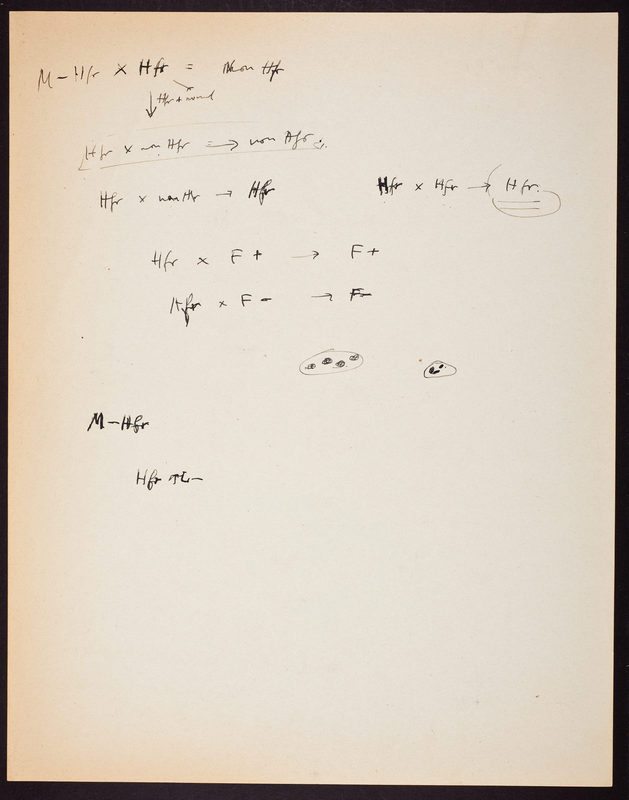 M - Hfr × Hfr = Non Hfr
Hfr + normal
Hfr × non Hfr → non Hfr
Hfr × non Hfr → Hfr
Hfr × Hfr → Hfr.
Hfr × F + → F +
Hfr × F - → F -
M - Hfr
Hfr